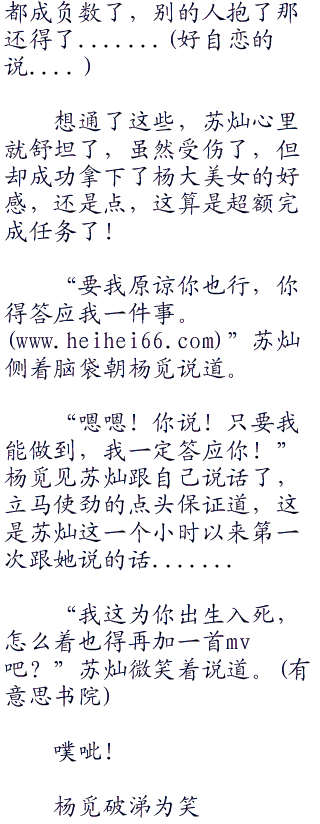 都成负数了，别的人抱了那
还得了.......(好自恋的
说....)
想通了这些，苏灿心里
就舒坦了，虽然受伤了，但
却成功拿下了杨大美女的好
感，还是点，这算是超额完
成任务了！
“要我原谅你也行，你
得答应我一件事。
(www.heihei66.com)”苏灿
侧着脑袋朝杨觅说道。
“嗯嗯！你说！只要我
能做到，我一定答应你！”
杨觅见苏灿跟自己说话了，
立马使劲的点头保证道，这
是苏灿这一个小时以来第一
次跟她说的话.......
“我这为你出生入死，
怎么着也得再加一首mv
吧？”苏灿微笑着说道。(有
意思书院)
噗呲！
杨觅破涕为笑